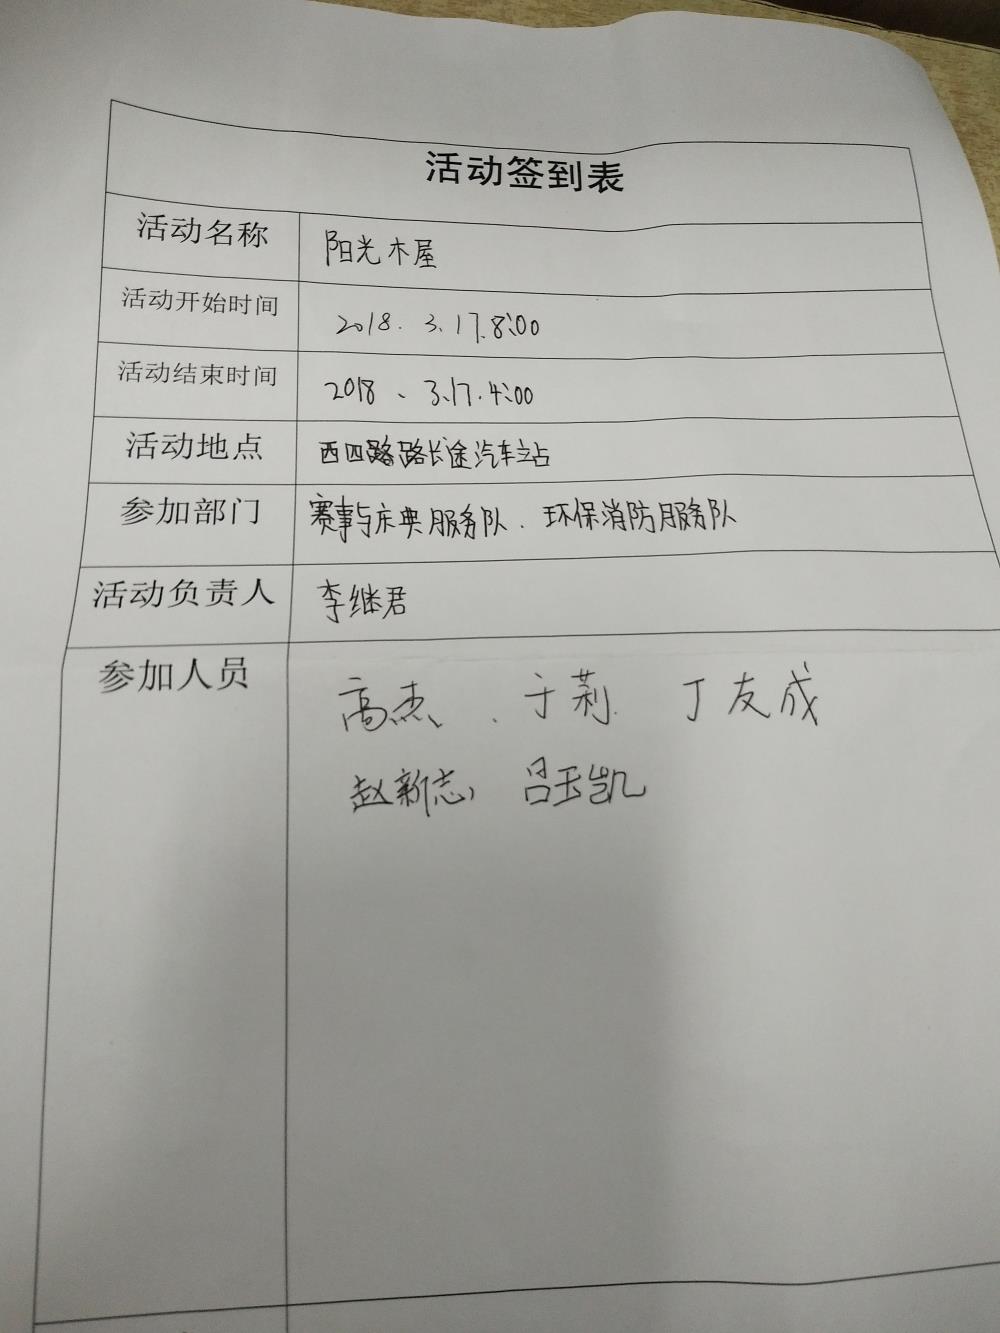 活动签到表
活动名称 阳光木屋
活动开始时间 2018. 3.17.8:00
活动结束时间 2018、3.17.4:00
活动地点 西四路路长途汽车站
参加部门 赛事与庆典服务队、环保消防服务队
活动负责人 李继君
参加人员 高杰、于莉 丁友成
赵新志 吕玉凯